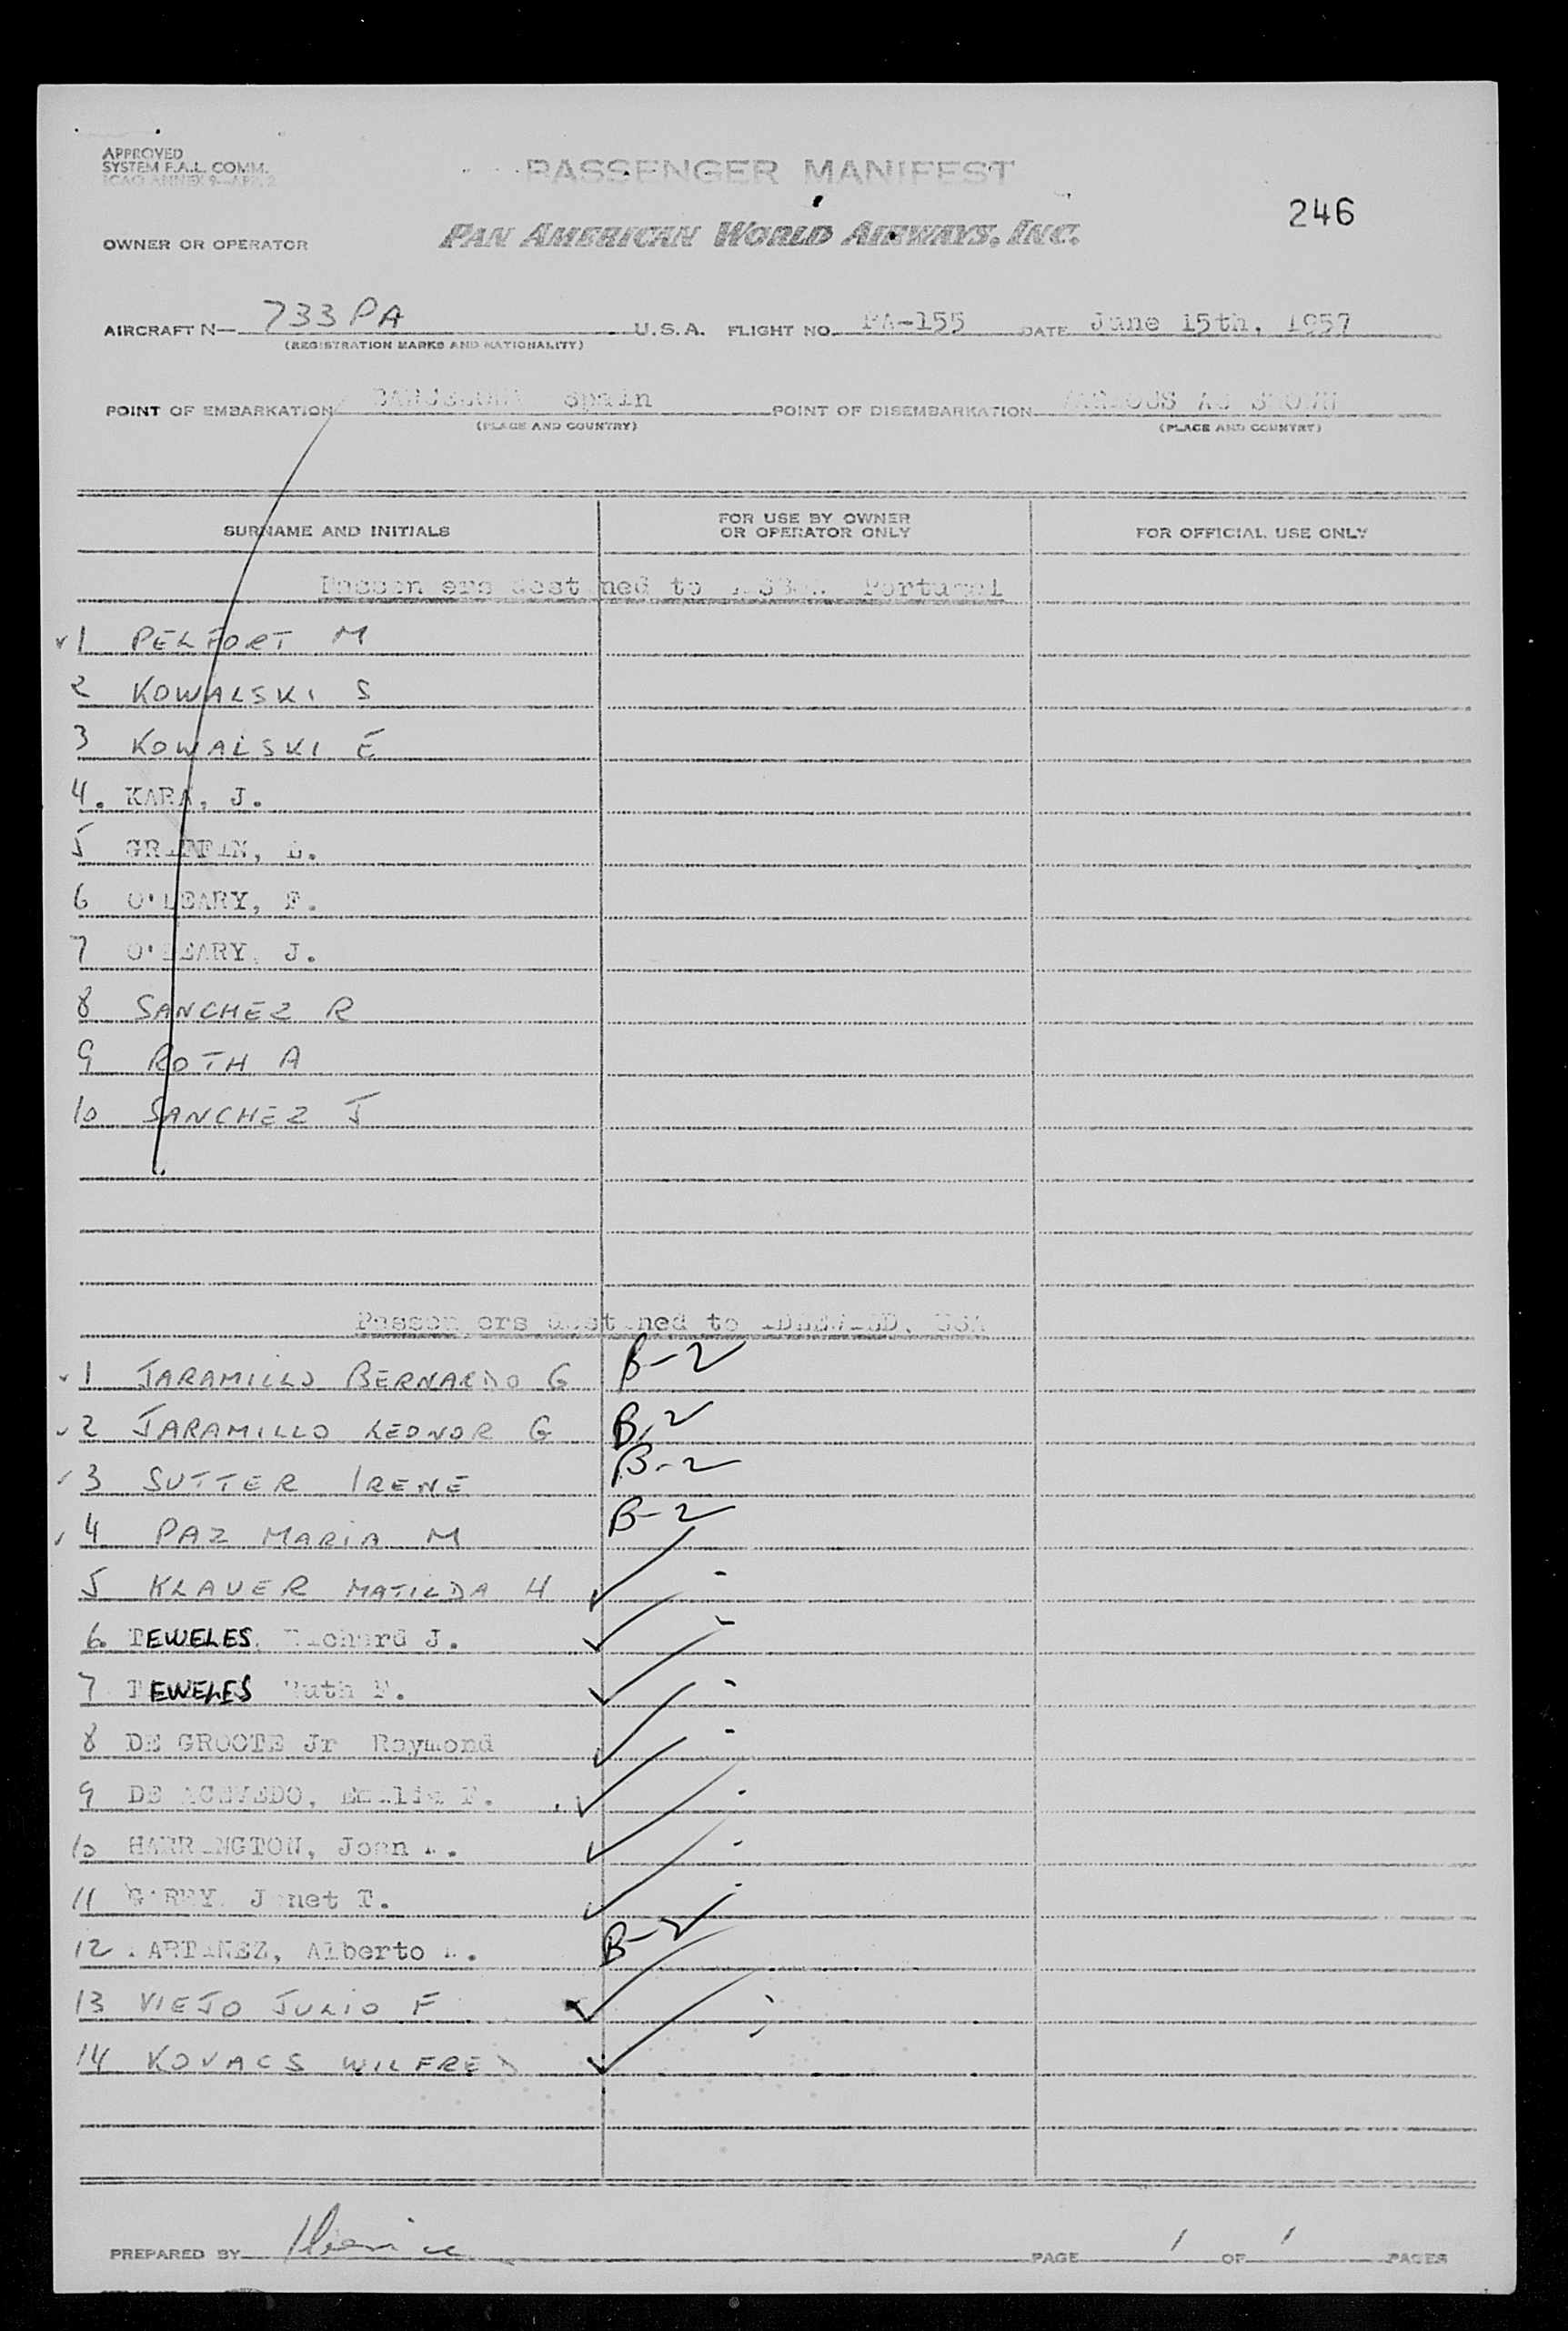 APPROVED
SYSTEM F.A.L. COMM.
ICAO ANNEX 9-APP. 2
PASSENGER MANIFEST
246
OWNER OR OPERATOR PAN AMERICAN WORLD AIRWAYS, INC.
AIRCRAFT N— 733 PA U.S.A. FLIGHT NO. PA-155 DATE June 15th, 1957
(REGISTRATION MARKS AND NATIONALITY)
POINT OF EMBARKATION BARCELONA Spain POINT OF DISEMBARKATION VARIOUS AS SHOWN
(PLACE AND COUNTRY) (PLACE AND COUNTRY)
SURNAME AND INITIALS FOR USE BY OWNER OR OPERATOR ONLY FOR OFFICIAL USE ONLY
Passengers destined to LISBON Portugal
1 PELFORT M
2 KOWALSKI S
3 KOWALSKI E
4. KARA, J.
5 GRIFFIN, L.
6 O'LEARY, F.
7 O'LEARY, J.
8 SANCHEZ R
9 ROTH A
10 SANCHEZ J
Passengers destined to IDLEWILD, USA
1 JARAMILLO BERNARDO G B-2
2 JARAMILLO LEONOR G B-2
3 SUTTER IRENE B-2
4 PAZ MARIA M B-2
5 KLAVER MATILDA H
6. TEWELES, Richard J.
7 TEWELES Ruth F.
8 DE GROOTE Jr Raymond
9 DE ACEVEDO, Emilia F.
10 HARRINGTON, Joan
11 Janet T.
12 MARTINEZ, Alberto B-2
13 VIEJO JULIO F
14 KOVACS WILFRED
PREPARED BY PAGE 1 OF 1 PAGES